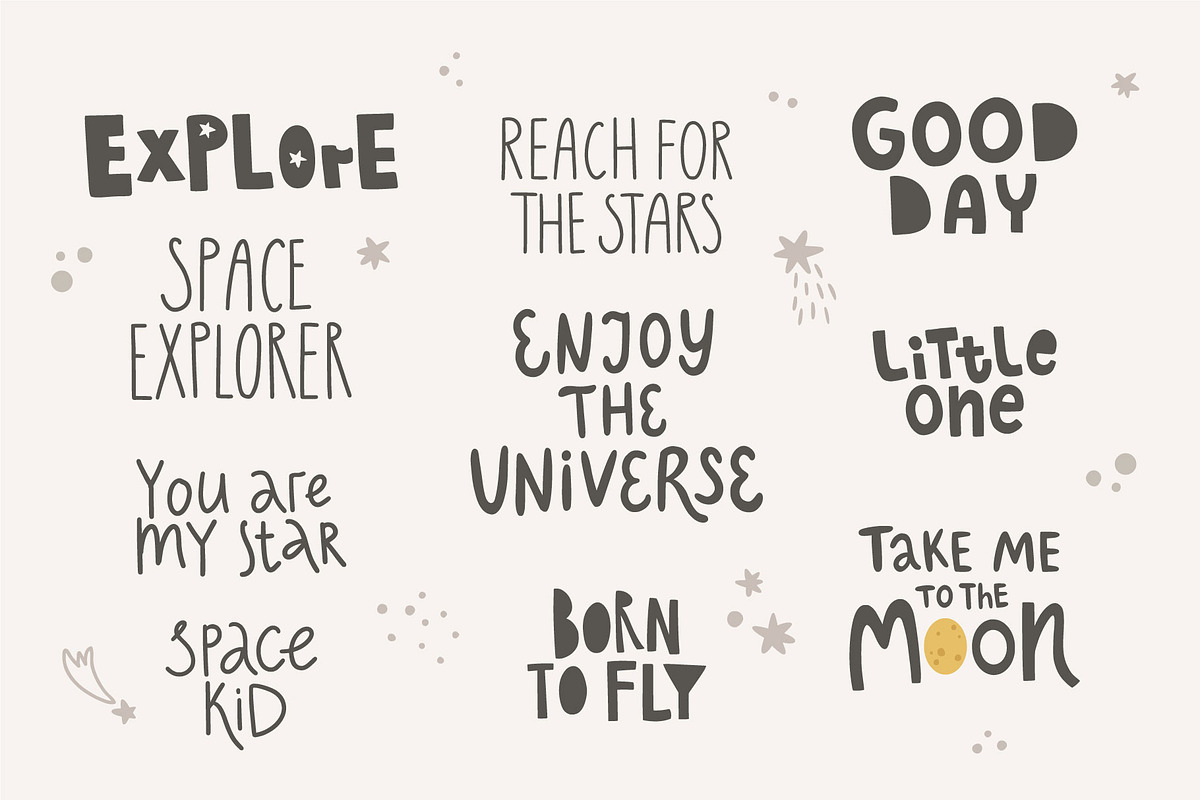 EXPLOrE
SPACE
EXPLORER
You are
MY StaR
Space
KiD
REACH FOR
THE STARS
ENJOY
THE
UNiVERSE
BORN
TO FLY
GOOD
DAY
LiTtLe
one
TaKE ME
TO THE
MOON